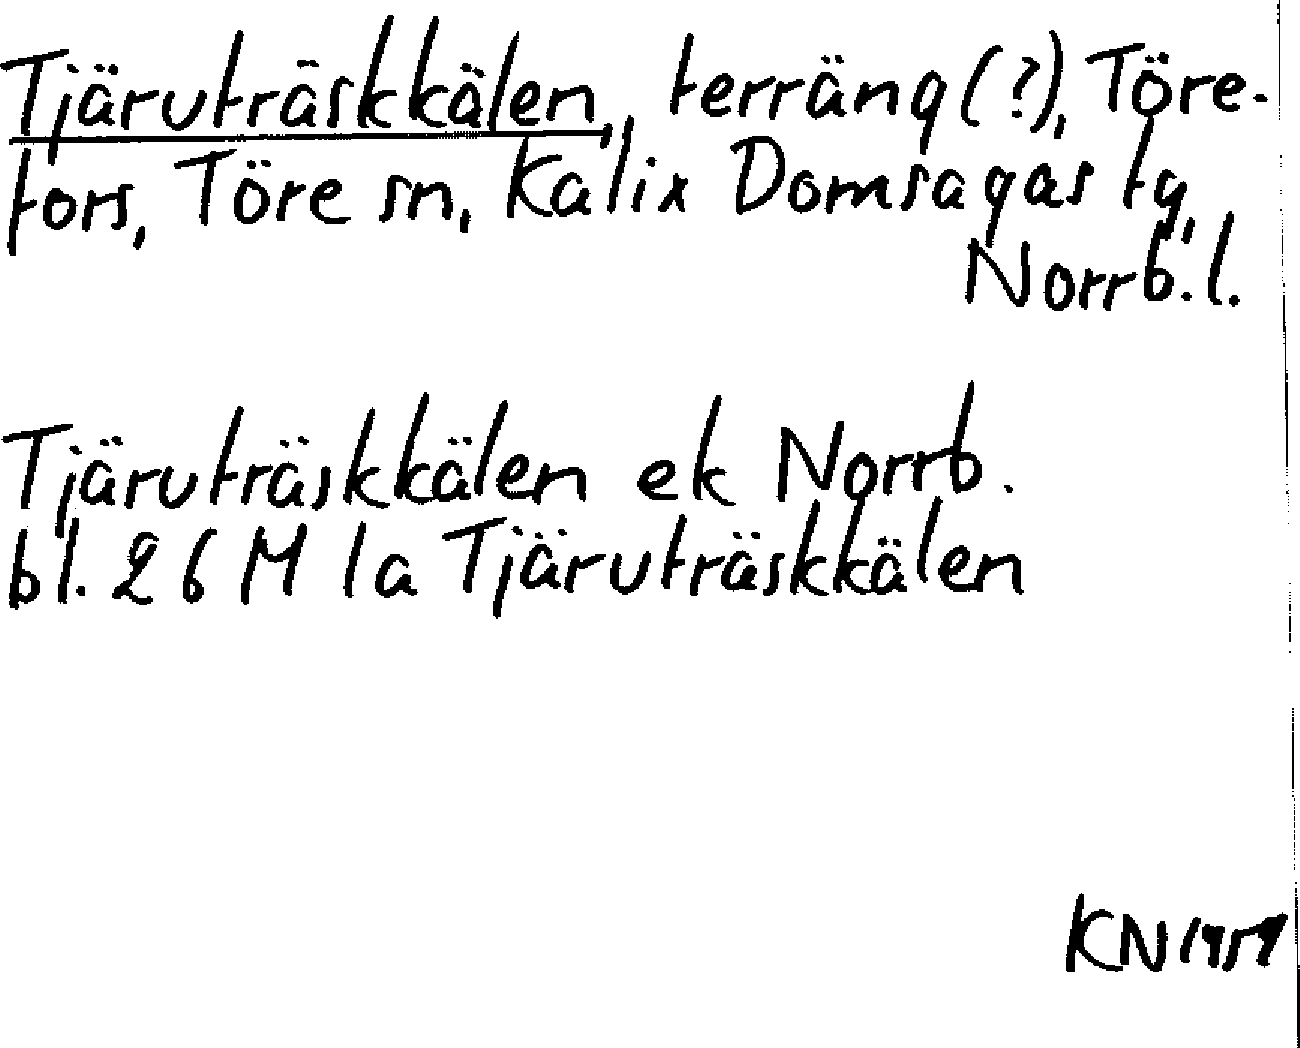 Tjäruträskkälen, terräng (?), Töre-
fors, Töre sn, Kalix Domsagas tg,
Norrb. l.
Tjäruträskkälen ek Norrb.
bl. 26 M la Tjäruträskkälen
KN